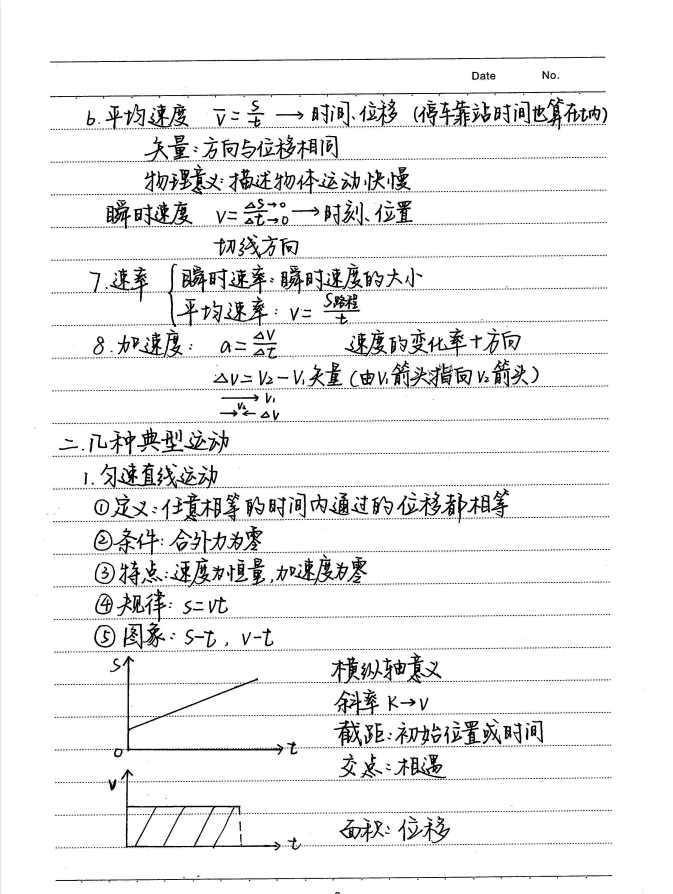 Date No.
6.平均速度 v̄=s/t → 时间、位移 (停车靠站时间也算在t内)
矢量:方向与位移相同
物理意义:描述物体运动快慢
瞬时速度 v=△s→0/△t→0 → 时刻、位置
切线方向
7.速率 { 瞬时速率:瞬时速度的大小
平均速率:v=S路程/t
8.加速度: a=△v/△t 速度的变化率+方向
△v=v₂-v₁矢量(由v₁箭头指向v₂箭头)
v₁
v₂ △v
二.几种典型运动
1.匀速直线运动
①定义:任意相等的时间内通过的位移都相等
②条件:合外力为零
③特点:速度为恒量,加速度为零
④规律:s=vt
⑤图象:s-t,v-t
S
横纵轴意义
斜率 K→v
截距:初始位置或时间
O t
交点:相遇
v
面积:位移
t